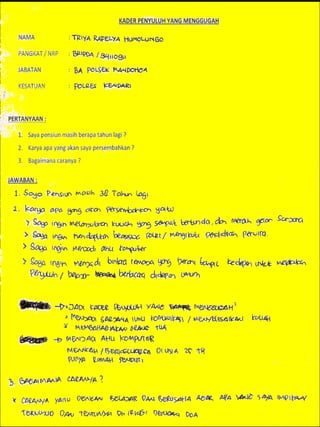 KADER PENYULUH YANG MENGGUGAH
NAMA : TRIYA RAFELYA HUMOLUNGO
PANGKAT / NRP : BRIPDA / 94110911
JABATAN : BA POLSEK MANDONGA
KESATUAN : POLRES KENDARI
PERTANYAAN :
1. Saya pensiun masih berapa tahun lagi ?
2. Karya apa yang akan saya persembahkan ?
3. Bagaimana caranya ?
JAWABAN :
1. Saya Pensiun masih 38 Tahun lagi
2. Karya apa yang akan Persembahkan yaitu
> Saya ingin melanjutkan kuliah yang sempat tertunda dan meraih gelar Sarjana
> Saya ingin mendapatkan beasiswa / mengikuti Pendidikan Perwira
> Saya ingin menjadi ahli komputer
> Saya ingin menjadi yang berani tampil kedepan untuk
Penyuluh / berbicara didepan umum
→ JADI KADER PENYULUH YANG MENGGUGAH
* MENJADI SARJANA ILMU KOMUNIKASI / MENYELESAIKAN KULIAH
* MEMBAHAGIAKAN ORANG TUA
→ MENJADI AHLI KOMPUTER
MENIKAH / DI USIA 25 TH
PUNYA RUMAH PRIBADI
3. BAGAIMANA CARANYA ?
* CARANYA YAITU DENGAN BELAJAR DAN BERUSAHA AGAR APA YANG SAYA IMPIKAN
TERWUJUD DAN TENTUNYA DI IRINGI DENGAN DOA